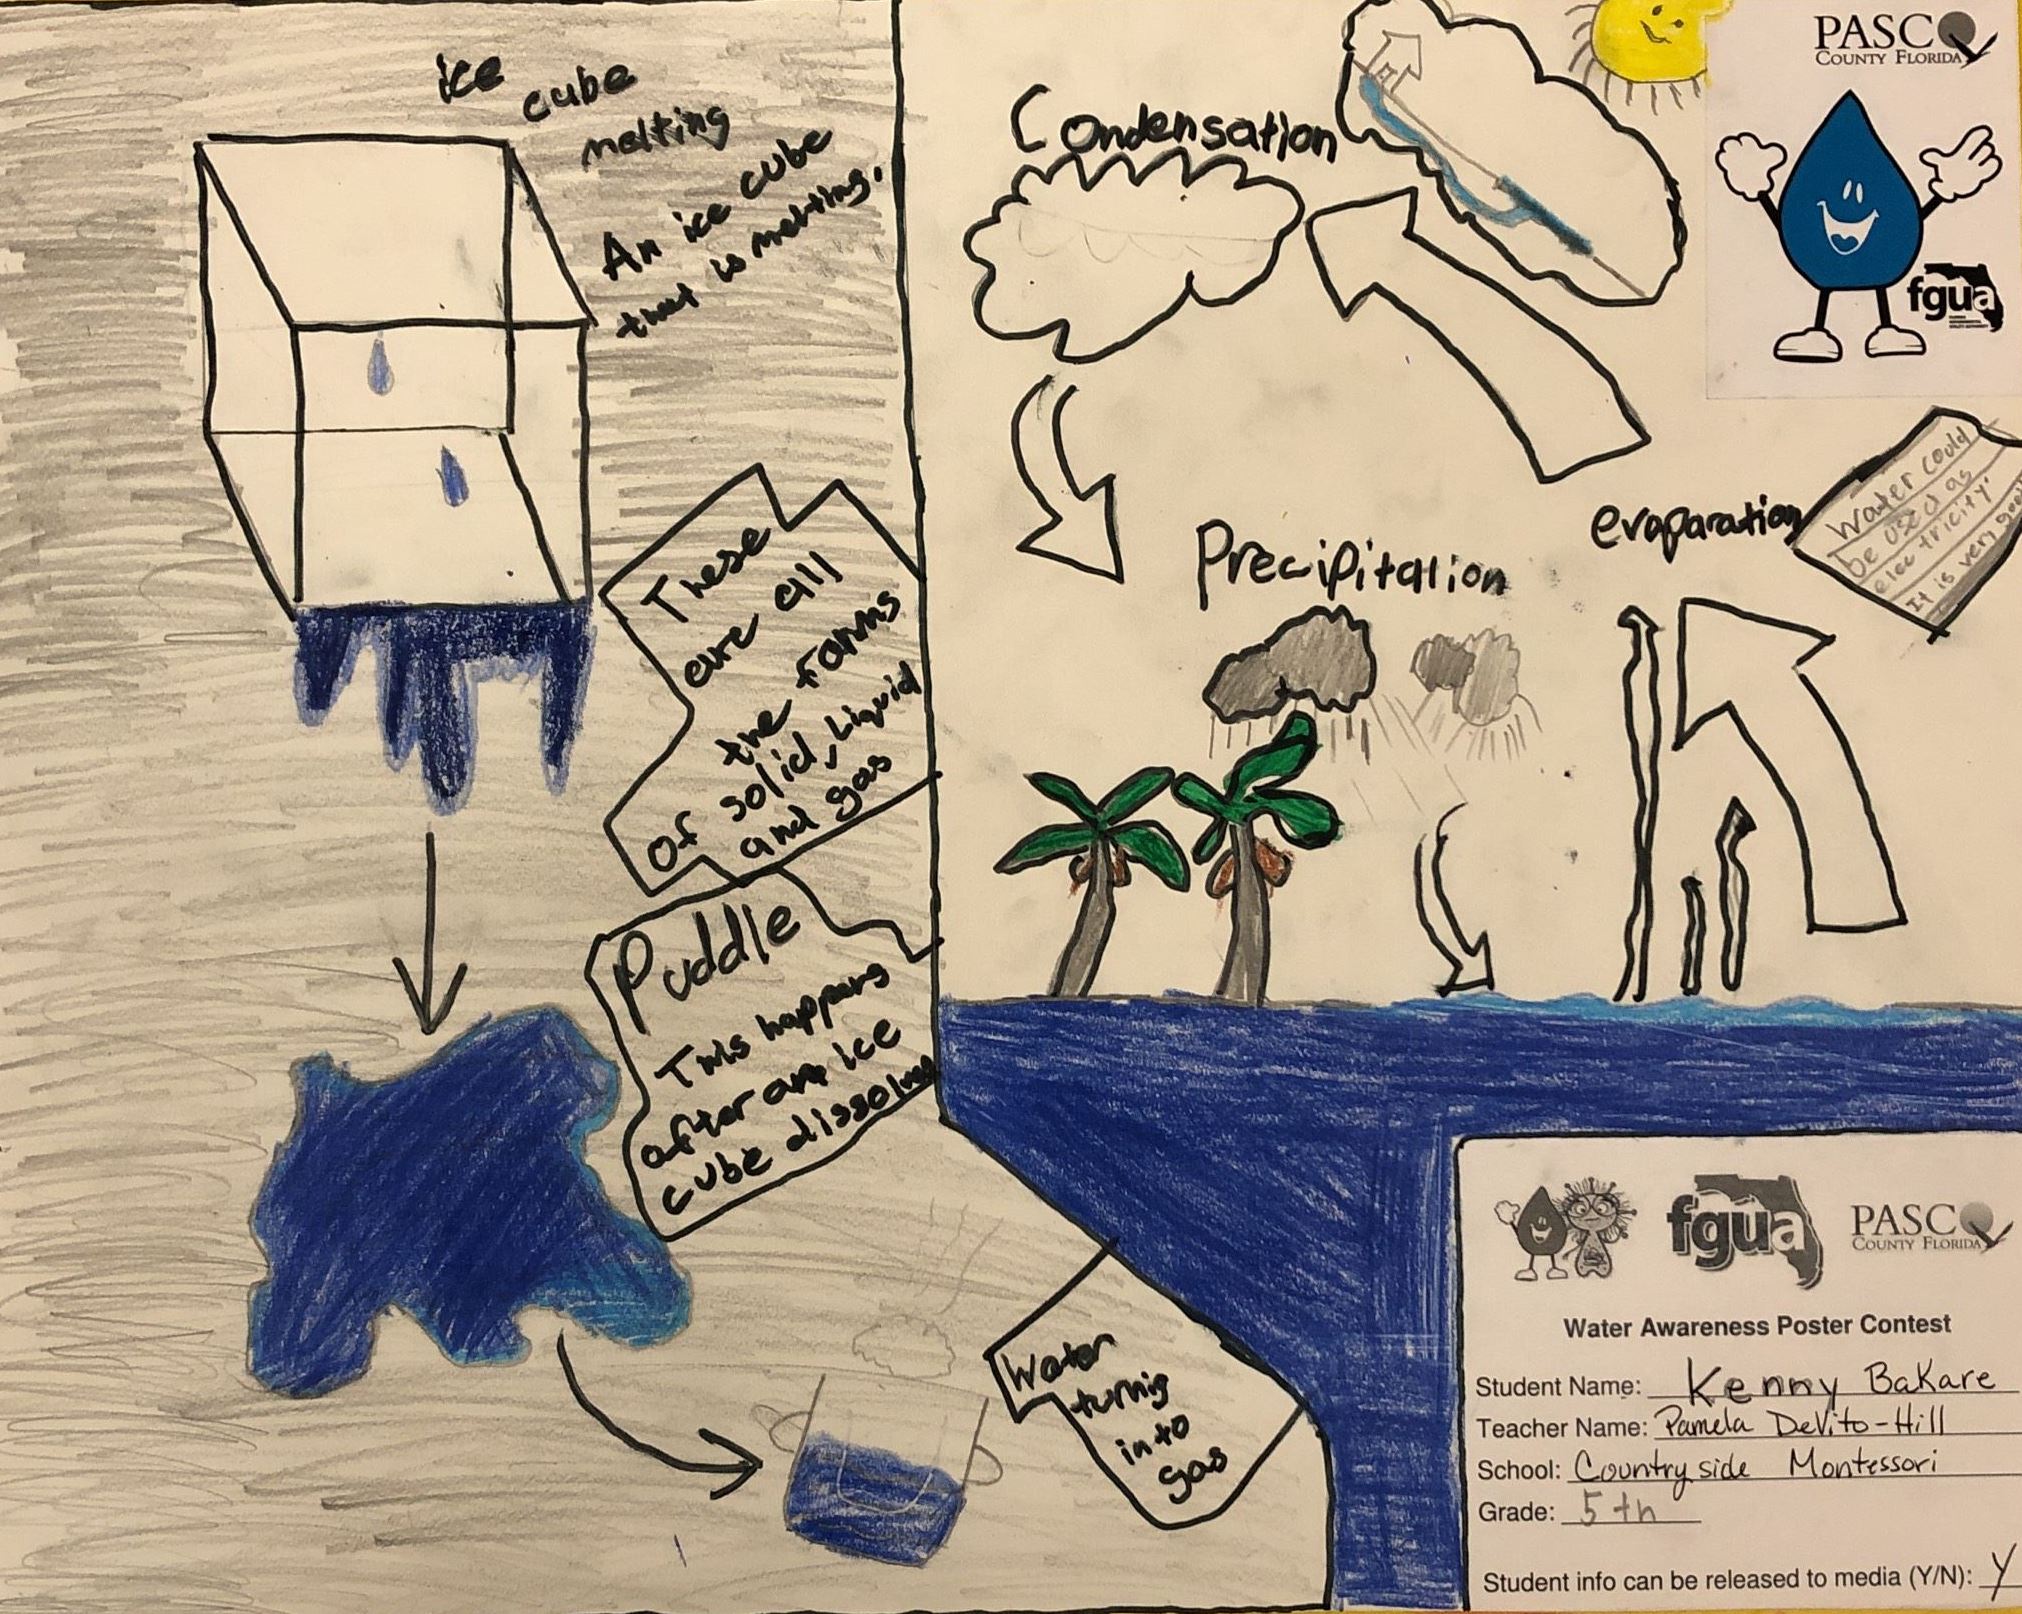 ice cube
melting
An ice cube
that is melting.
These
are all
the forms
of solid, Liquid
and gas
Puddle
This happens
after an ice
cube dissolves
Water
turnig
into
gas
Condensation
Precipitation
evaparation
Water could
be used as
electricity.
It is very good
PASCO
COUNTY FLORIDA
fgua
fgua
PASCO
COUNTY FLORIDA
Water Awareness Poster Contest
Student Name: Kenny BaKare
Teacher Name: Pamela DeVito-Hill
School: Countryside Montessori
Grade: 5th
Student info can be released to media (Y/N): Y